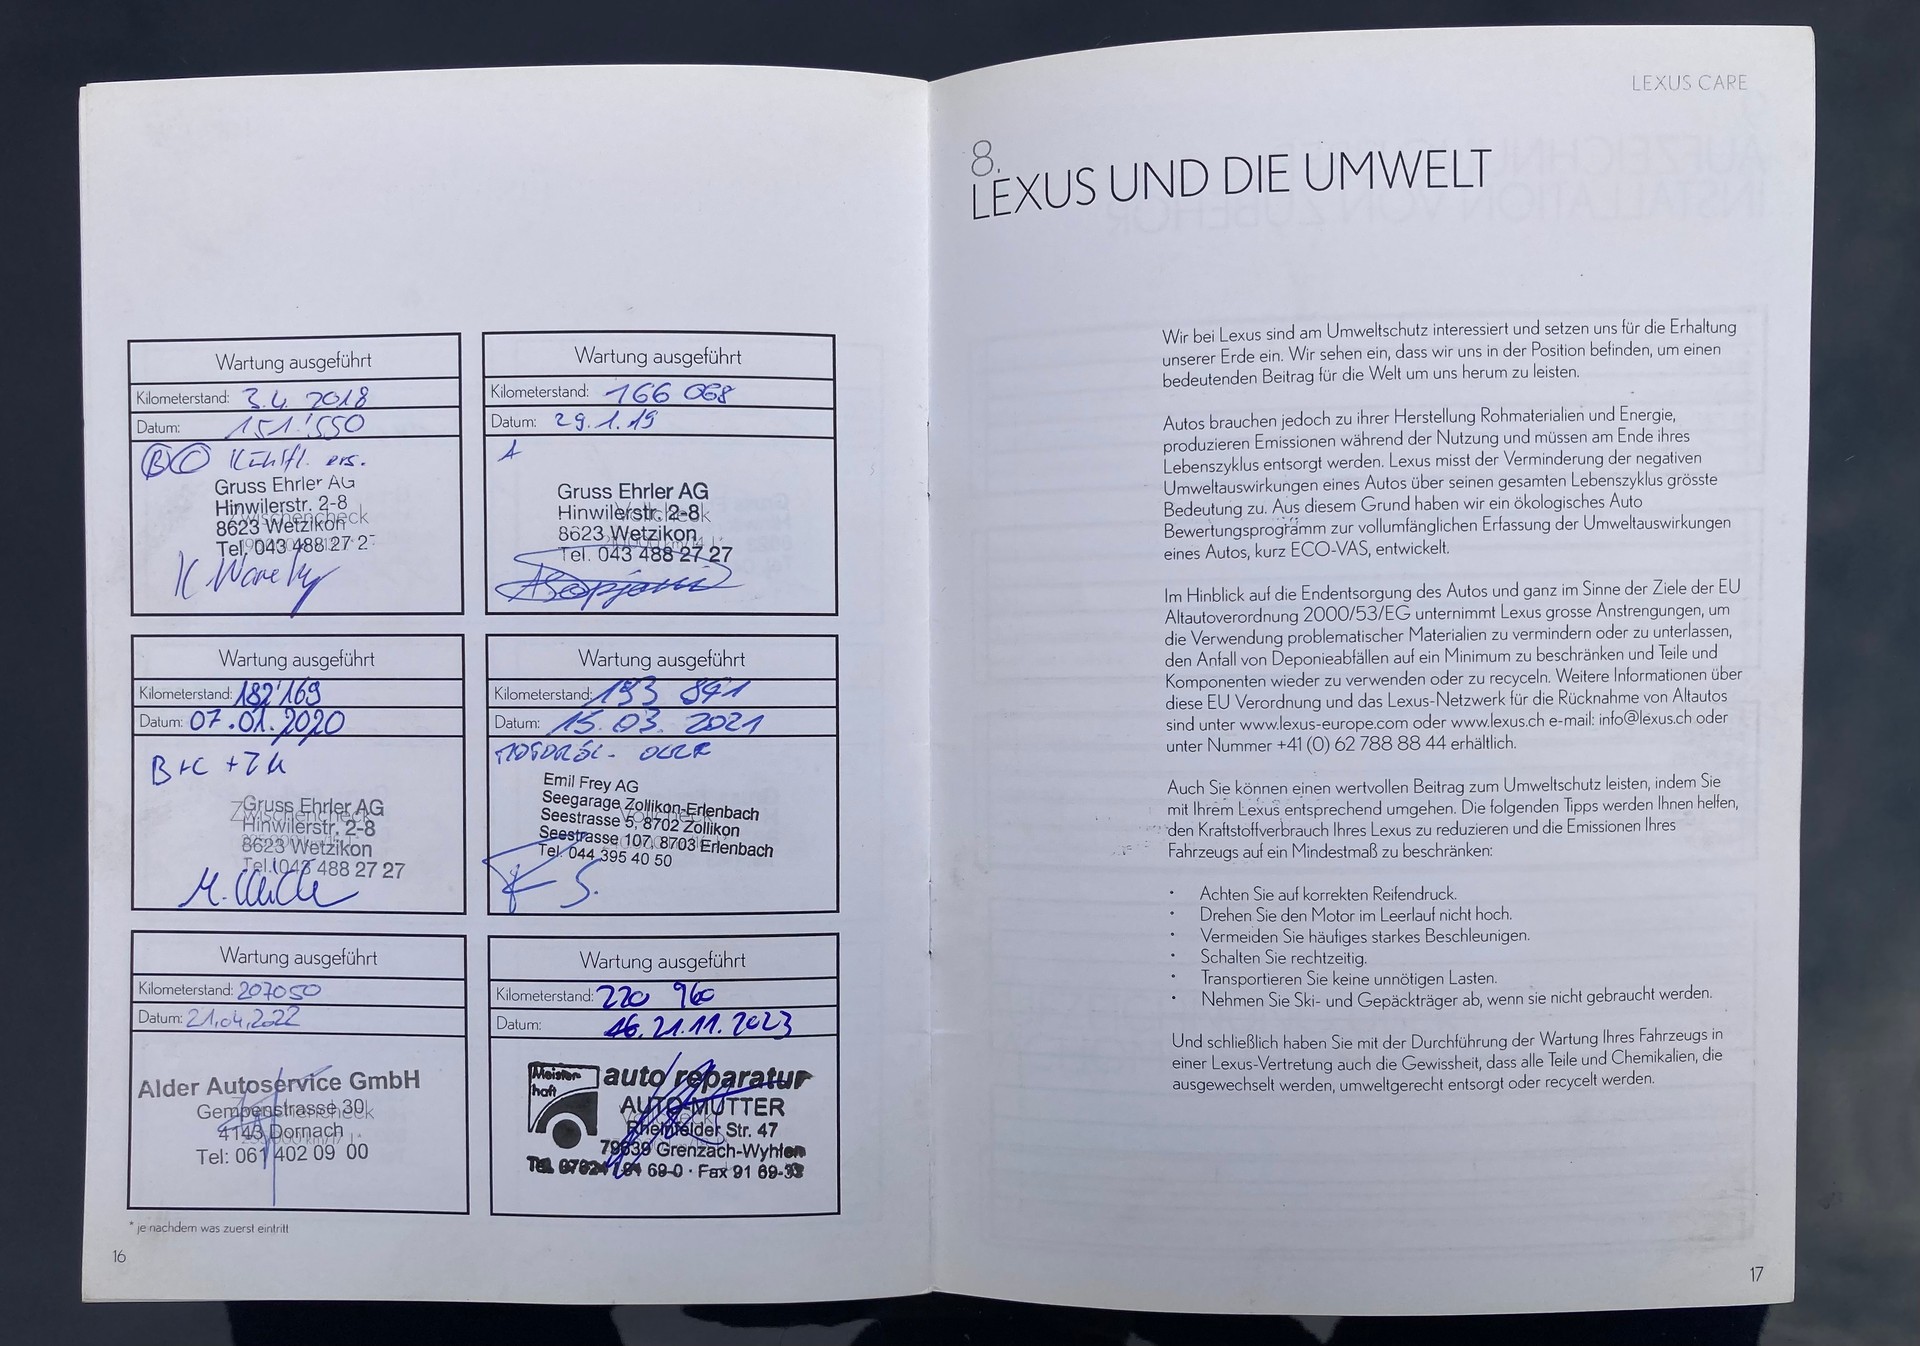 Wartung ausgeführt
Kilometerstand: 3.4. 2018
Datum: 151'550
B C Kühlfl. ers.
Gruss Ehrler AG
Hinwilerstr. 2-8
Zwischencheck
8623 Wetzikon
Tel. 043 488 27 2
Wartung ausgeführt
Kilometerstand: 166 068
Datum: 29.1.19
A
Gruss Ehrler AG
Hinwilerstr. 2-8
Vollcheck
8623 Wetzikon
Tel. 043 488 27 27
Wartung ausgeführt
Kilometerstand: 182'169
Datum: 07.01.2020
B+C +ZK
Gruss Ehrler AG
Zwischencheck
Hinwilerstr. 2-8
8623 Wetzikon
Tel. 043 488 27 27
Wartung ausgeführt
Kilometerstand: 193 891
Datum: 15.03.2021
MOTORÖL-
Emil Frey AG
Seegarage Zollikon-Erlenbach
Vollcheck
Seestrasse 5, 8702 Zollikon
Seestrasse 107, 8703 Erlenbach
Tel. 044 395 40 50
Wartung ausgeführt
Kilometerstand: 207050
Datum: 21.04.2022
Alder Autoservice GmbH
Gempenstrasse 30
Zwischencheck
4143 Dornach
Tel: 061 402 09 00
Wartung ausgeführt
Kilometerstand: 220 960
Datum: 21.11.2023
Meister
haft
auto reparatur
AUTO-MUTTER
Vollcheck
Rheinfelder Str. 47
79639 Grenzach-Wyhlen
Tel. 69-0 · Fax 91 69-33
* je nachdem was zuerst eintritt
16
LEXUS CARE
8.
LEXUS UND DIE UMWELT
Wir bei Lexus sind am Umweltschutz interessiert und setzen uns für die Erhaltung
unserer Erde ein. Wir sehen ein, dass wir uns in der Position befinden, um einen
bedeutenden Beitrag für die Welt um uns herum zu leisten.
Autos brauchen jedoch zu ihrer Herstellung Rohmaterialien und Energie,
produzieren Emissionen während der Nutzung und müssen am Ende ihres
Lebenszyklus entsorgt werden. Lexus misst der Verminderung der negativen
Umweltauswirkungen eines Autos über seinen gesamten Lebenszyklus grösste
Bedeutung zu. Aus diesem Grund haben wir ein ökologisches Auto
Bewertungsprogramm zur vollumfänglichen Erfassung der Umweltauswirkungen
eines Autos, kurz ECO-VAS, entwickelt.
Im Hinblick auf die Endentsorgung des Autos und ganz im Sinne der Ziele der EU
Altautoverordnung 2000/53/EG unternimmt Lexus grosse Anstrengungen, um
die Verwendung problematischer Materialien zu vermindern oder zu unterlassen,
den Anfall von Deponieabfällen auf ein Minimum zu beschränken und Teile und
Komponenten wieder zu verwenden oder zu recyceln. Weitere Informationen über
diese EU Verordnung und das Lexus-Netzwerk für die Rücknahme von Altautos
sind unter www.lexus-europe.com oder www.lexus.ch e-mail: info@lexus.ch oder
unter Nummer +41 (0) 62 788 88 44 erhältlich.
Auch Sie können einen wertvollen Beitrag zum Umweltschutz leisten, indem Sie
mit Ihrem Lexus entsprechend umgehen. Die folgenden Tipps werden Ihnen helfen,
den Kraftstoffverbrauch Ihres Lexus zu reduzieren und die Emissionen Ihres
Fahrzeugs auf ein Mindestmaß zu beschränken:
• Achten Sie auf korrekten Reifendruck.
• Drehen Sie den Motor im Leerlauf nicht hoch.
• Vermeiden Sie häufiges starkes Beschleunigen.
• Schalten Sie rechtzeitig.
• Transportieren Sie keine unnötigen Lasten.
• Nehmen Sie Ski- und Gepäckträger ab, wenn sie nicht gebraucht werden.
Und schließlich haben Sie mit der Durchführung der Wartung Ihres Fahrzeugs in
einer Lexus-Vertretung auch die Gewissheit, dass alle Teile und Chemikalien, die
ausgewechselt werden, umweltgerecht entsorgt oder recycelt werden.
17